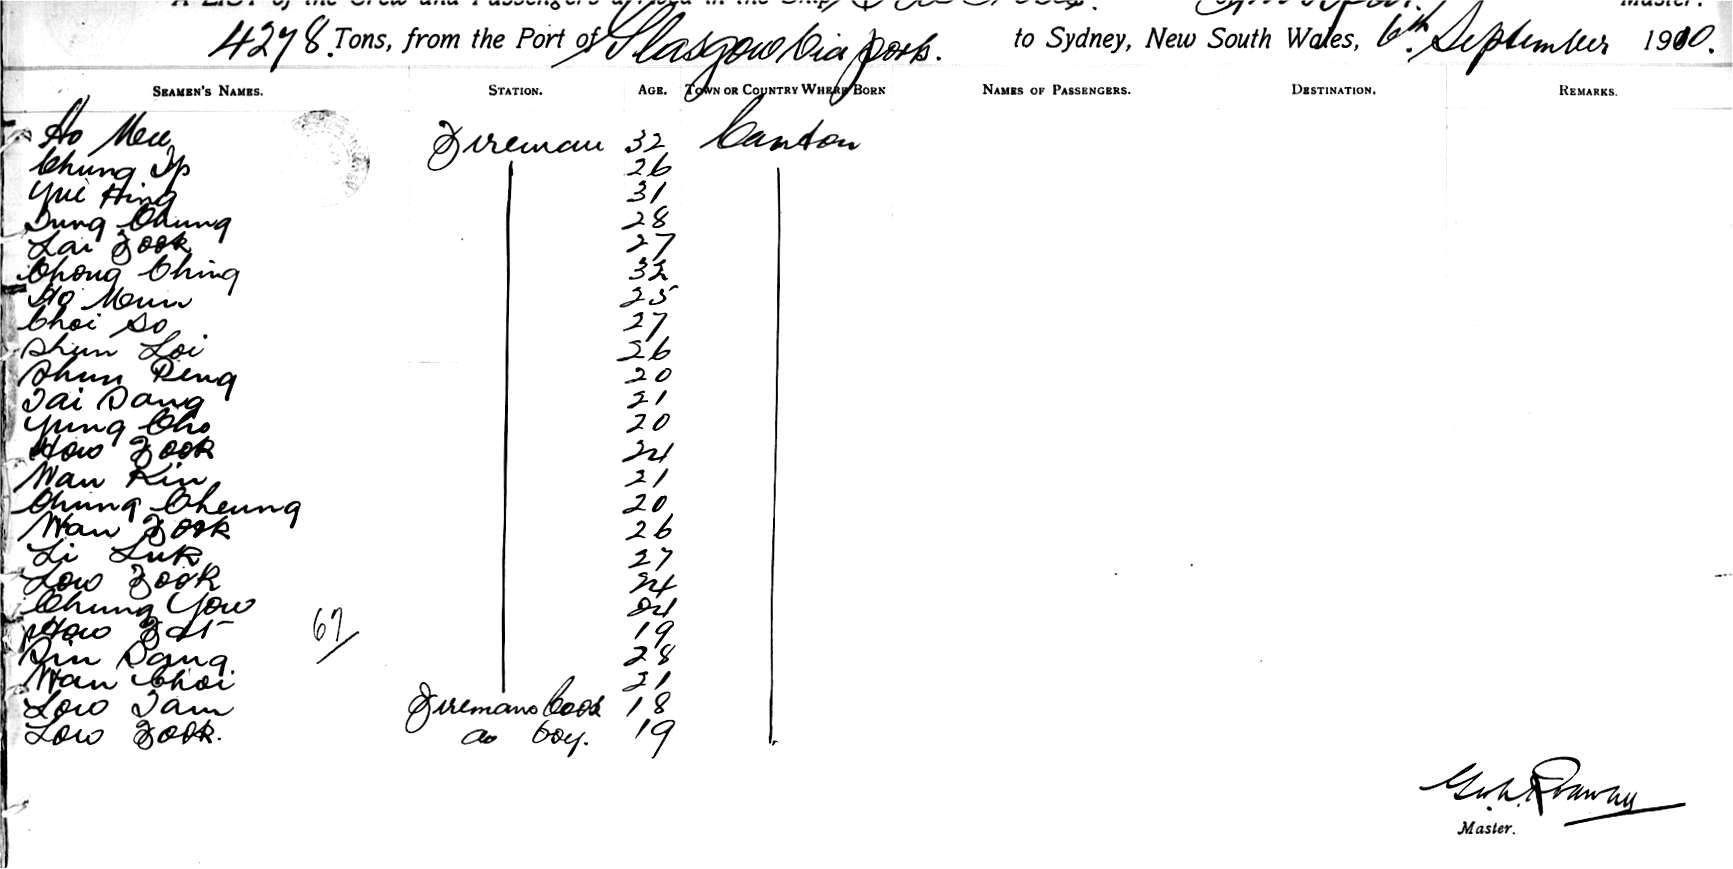 A LIST of the Crew and Passengers arrived in the Ship Master.
4278 Tons, from the Port of Glasgow via ports. to Sydney, New South Wales, 6th September 1910.
SEAMEN'S NAMES. STATION. AGE. TOWN OR COUNTRY WHERE BORN NAMES OF PASSENGERS. DESTINATION. REMARKS.
Ho Mee Fireman 32 Canton
Chung Ip 26
Yue Hing 31
Tung Chung 28
Lai Fook 27
Chong Ching 32
Ho Mun 25
Choi So 27
Shun Loi 26
Shun Peng 20
Tai Sang 21
Yung Cho 20
How Fook 24
Wan Kin 21
Chung Cheung 20
Wan Fook 26
Li Luk 27
Low Fook 24
Chung Yow 24
How Fat 19
67
28
Wan Choi 21
Low Tam Firemans Cook 18
Low Fook. do boy. 19
Master.